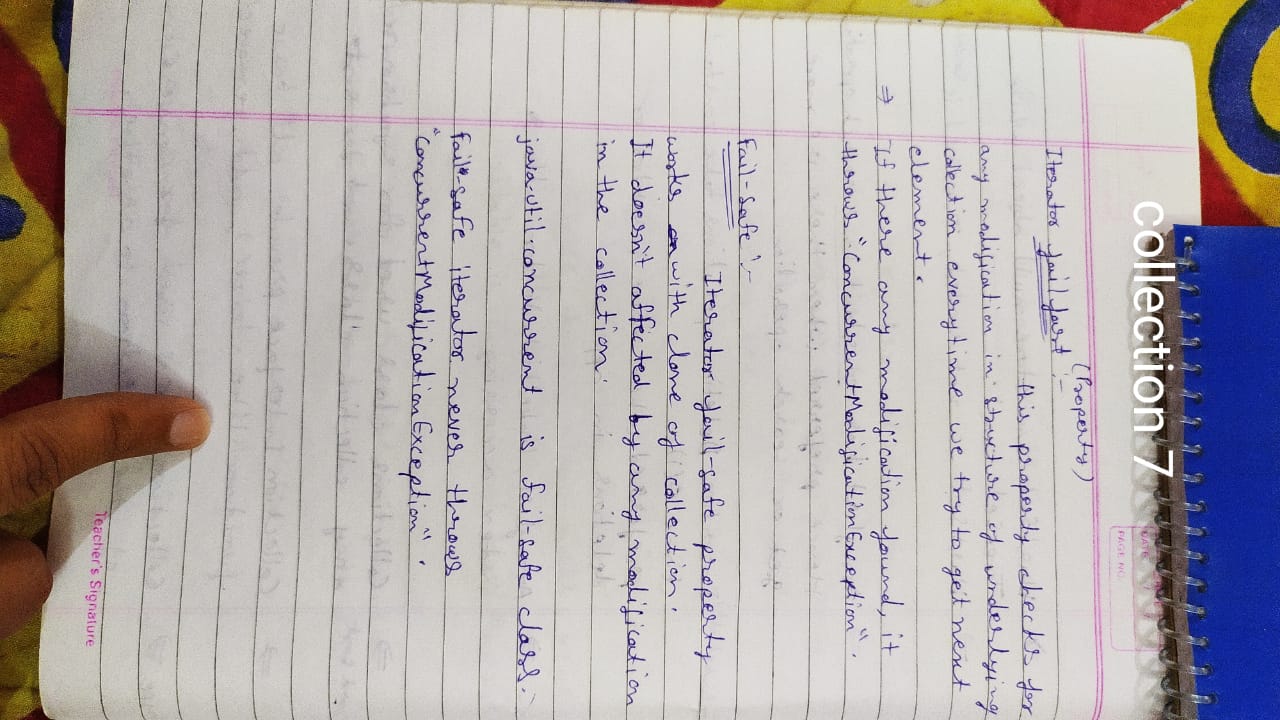 collection 7
DATE
PAGE NO.
(Property)
Iterator fail fast :-
this property checks for
any modification in structure of underlying
collection everytime we try to get next
element.
⇒ If there any modification found, it
throws "ConcurrentModificationException".
Fail-Safe :-
Iterator fail-safe property
works with clone of collection.
It doesn't affected by any modification
in the collection.
java.util.concurrent is fail-safe class.
fail-safe iterator never throws
"ConcurrentModificationException".
Teacher's Signature